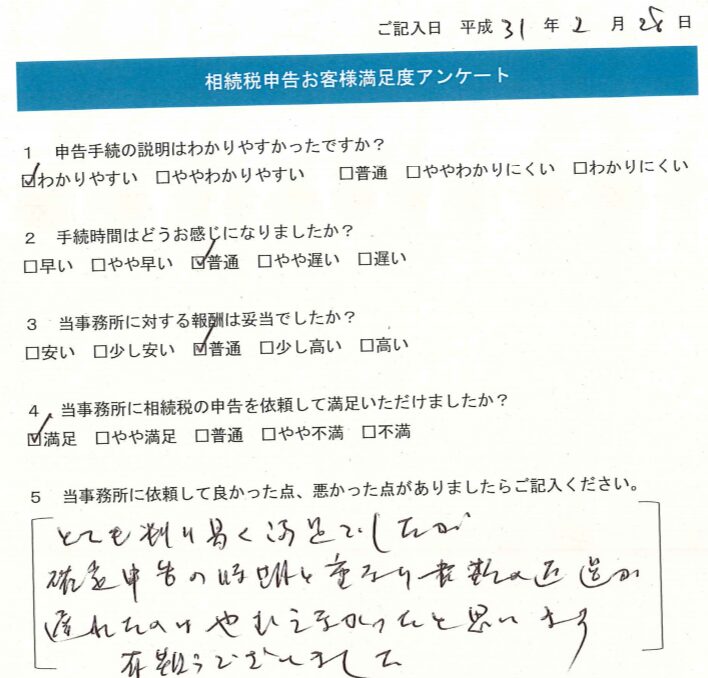 ご記入日 平成 31 年 2 月 28 日
相続税申告お客様満足度アンケート
1 申告手続の説明はわかりやすかったですか?
☑わかりやすい □ややわかりやすい □普通 □ややわかりにくい □わかりにくい
2 手続時間はどうお感じになりましたか?
□早い □やや早い ☑普通 □やや遅い □遅い
3 当事務所に対する報酬は妥当でしたか?
□安い □少し安い ☑普通 □少し高い □高い
4 当事務所に相続税の申告を依頼して満足いただけましたか?
☑満足 □やや満足 □普通 □やや不満 □不満
5 当事務所に依頼して良かった点、悪かった点がありましたらご記入ください。
とても判り易く満足でしたが
確定申告の時期と重なり書類の返送が
遅れたのはやむえなかったと思います
有難うございました